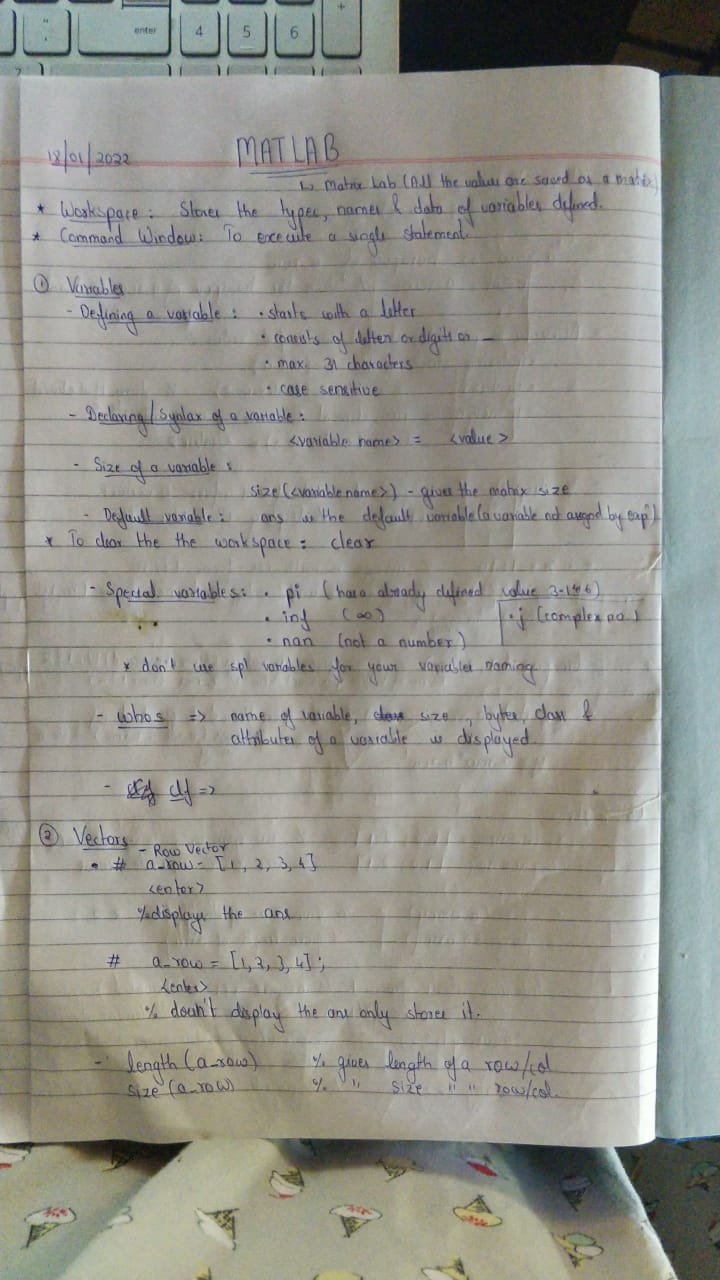 enter
4
5
6
+
18/01/2022 MATLAB
↳ Matrix Lab (All the values are saved as a matrix)
* Workspace : Stores the types, names & data of variables defined.
* Command Window : To execute a single statement.
① Variables
- Defining a variable : • starts with a letter
• consists of letter or digits or _
• max. 31 characters
• case sensitive
- Declaring / Syntax of a variable :
<variable name> = <value>
- Size of a variable :
size (<variable name>) - gives the matrix size
- Default variable : ans is the default variable (a variable not assgnd by exp")
* To clear the the workspace : clear
- Special variables : • pi (has a already defined value 3.1416)
• inf (∞) • j (complex no.)
• nan (not a number)
* don't use spl variables for your variables naming
- whos => name of variable, size, bytes, class &
attributes of a variable is displayed.
- clf =>
② Vectors - Row Vector
• # a_row = [1, 2, 3, 4]
<enter>
% displays the ans
# a_row = [1, 2, 3, 4] ;
<enter>
% doesn't display the ans only stores it.
- length (a_row) % gives length of a row/col
size (a_row) % " size " " row/col.